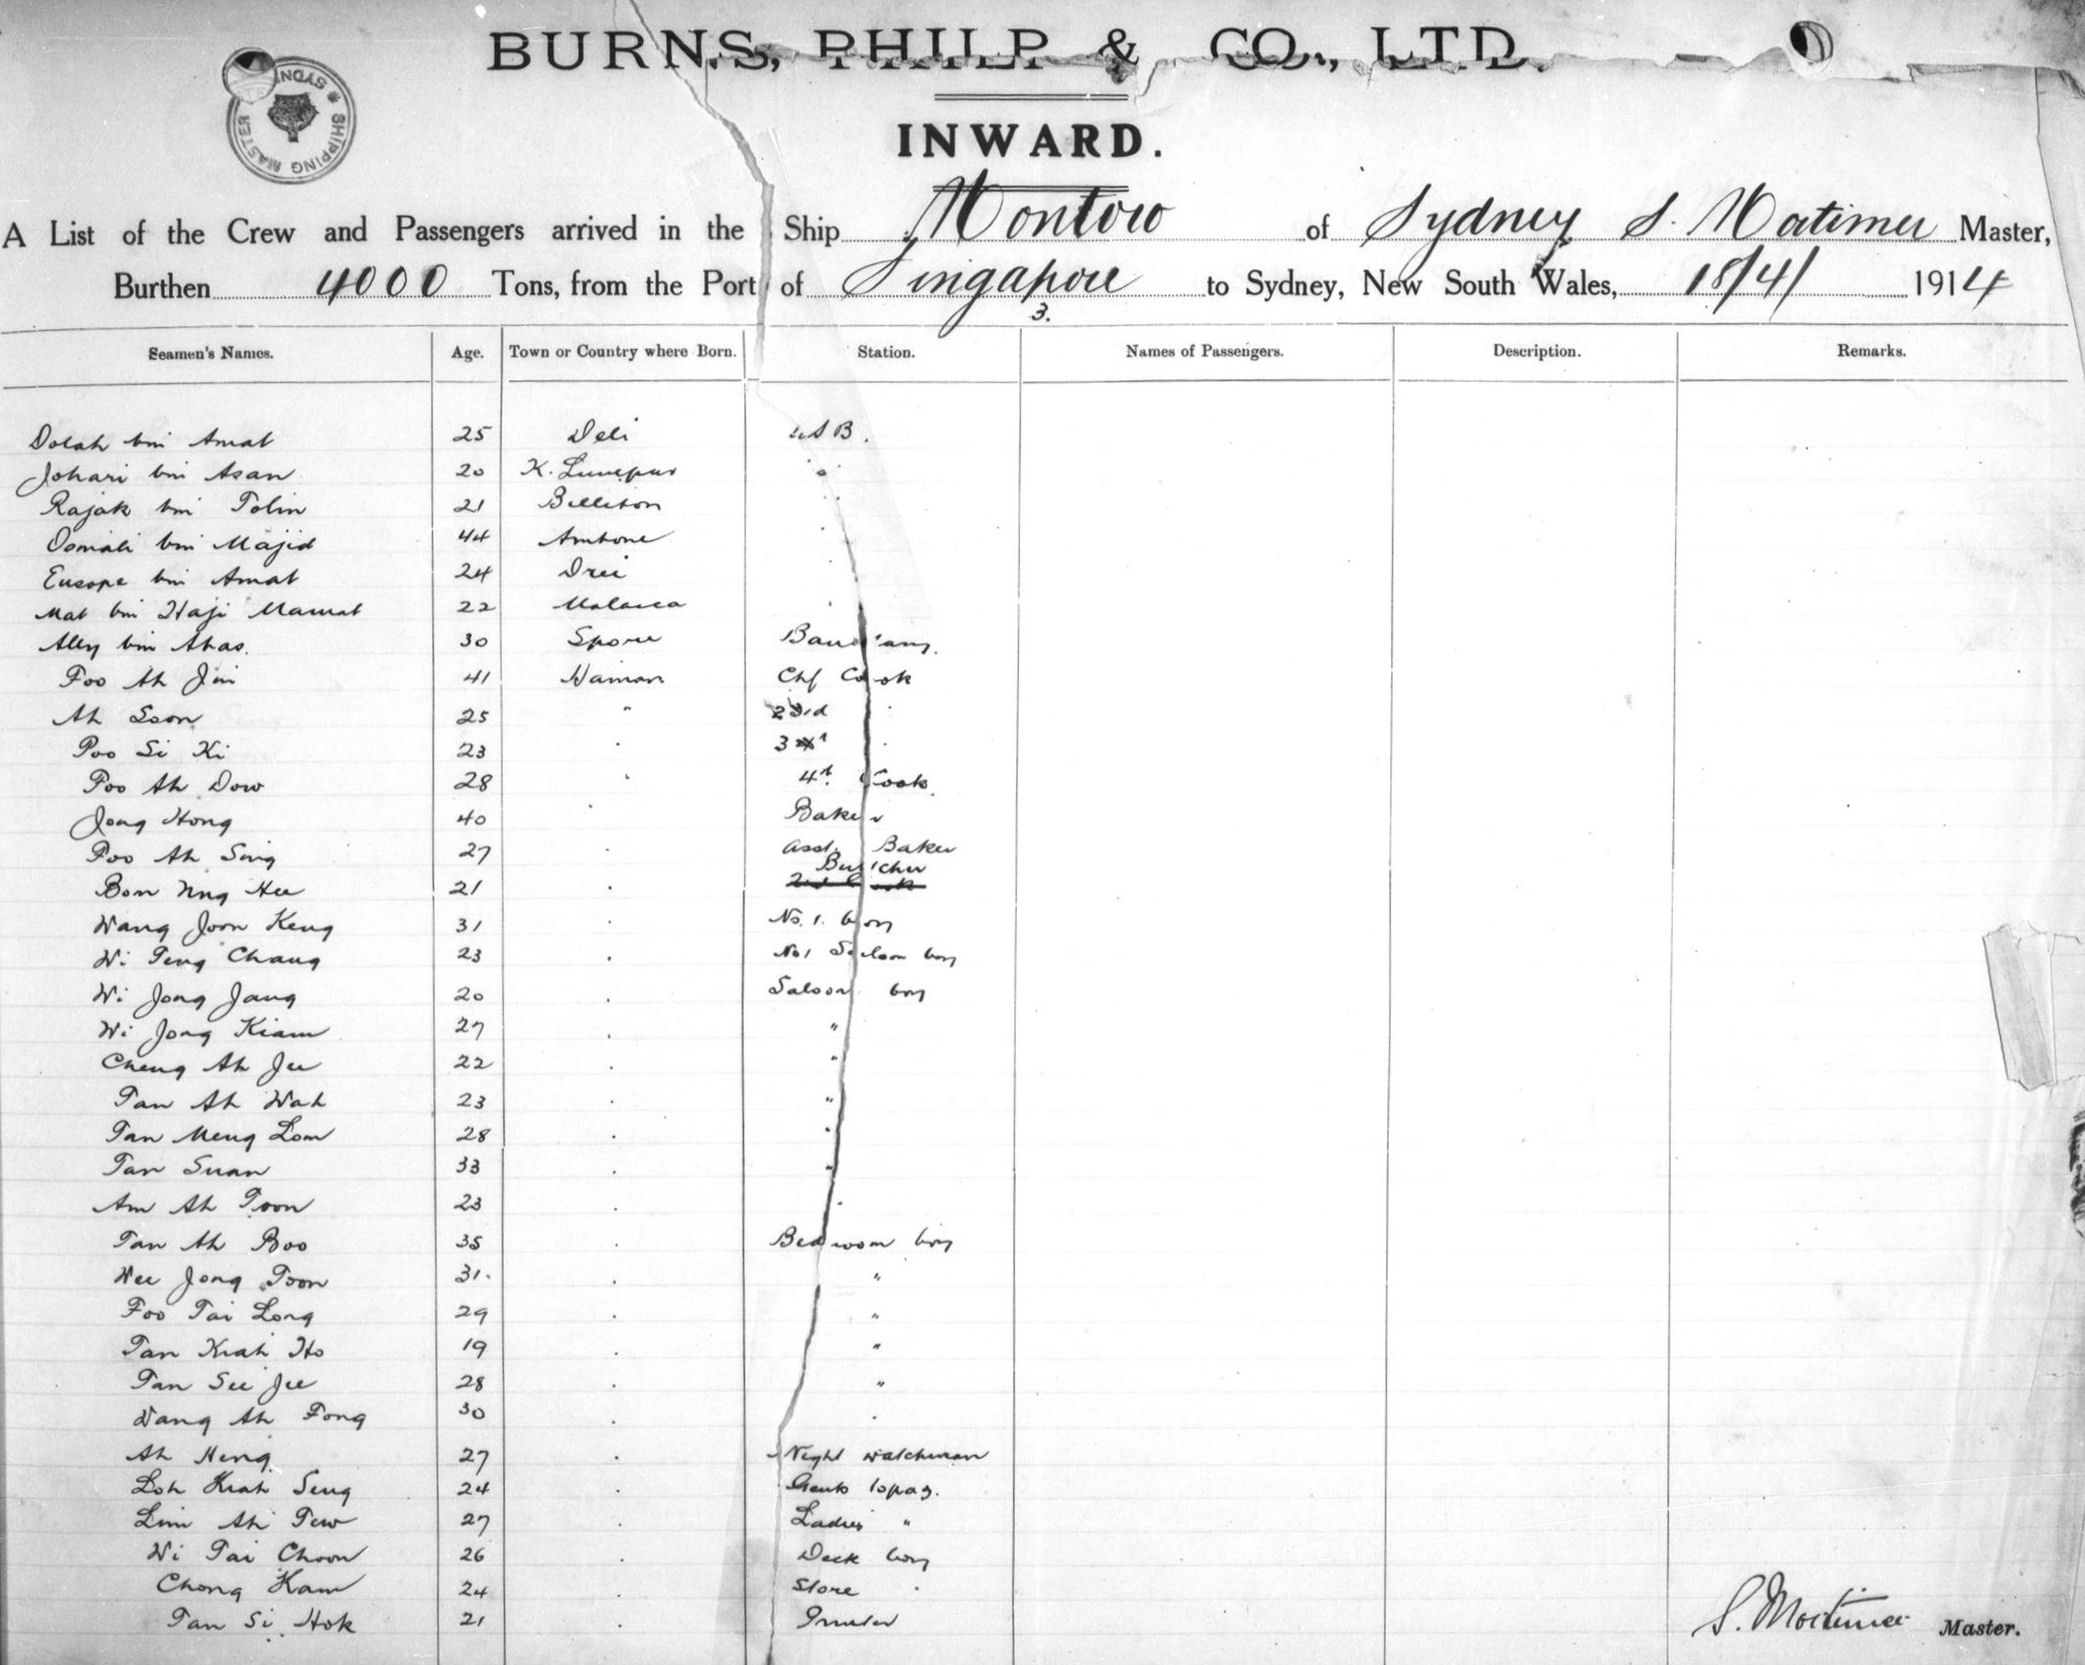 BURNS, PHILP & CO., LTD.
SYDNEY * SHIPPING MASTER
INWARD.
A List of the Crew and Passengers arrived in the Ship Montoro of Sydney S. Mortimer Master,
Burthen 4000 Tons, from the Port of Singapore to Sydney, New South Wales, 18/4/ 1914
3.
Seamen's Names. Age. Town or Country where Born. Station. Names of Passengers. Description. Remarks.
Dolah bin Amat 25 Deli A B.
Johari bin Asan 20 K. Lumpur "
Rajak bin Tolin 21 Billiton "
Osmali bin Majid 44 Ambone "
Eusope bin Amat 24 "
Mat bin Haji Mamat 22 Malacca "
Ally bin Abas. 30 Spore
Foo Ah Jin 41 Hainan Chf Cook
Ah Soon 25 " 2nd "
Poo Si Ki 23 " 3rd "
Foo Ah Dow 28 " 4th Cook
Jong Hong 40 " Baker
Foo Ah Sing 27 " Asst. Baker
Bon Nng Hee 21 " Butcher
Wang Joon Keng 31 " No. 1. boy
Wi Peng Chang 23 " No 1 Saloon boy
Wi Jong Jang 20 " Saloon boy
Wi Jong Kiam 27 " "
Cheng Ah Jee 22 " "
Tan Ah Wah 23 " "
Tan Meng Lom 28 " "
Tan Suan 33 " "
Am Ah Toon 23 " "
Tan Ah Boo 35 " Bedroom boy
Wee Jong Toon 31 " "
Foo Tai Long 29 " "
Tan Kiah Ho 19 " "
Tan See Jee 28 " "
Wang Ah Fong 30 " "
Ah Heng 27 " Night watchman
Loh Kiah Seng 24 " Gents topaz.
Lim Ah Tew 27 " Ladies "
Wi Tai Choon 26 " Deck boy
Chong Kam 24 " Store "
Tan Si Hok 21 " Printer
S. Mortimer Master.